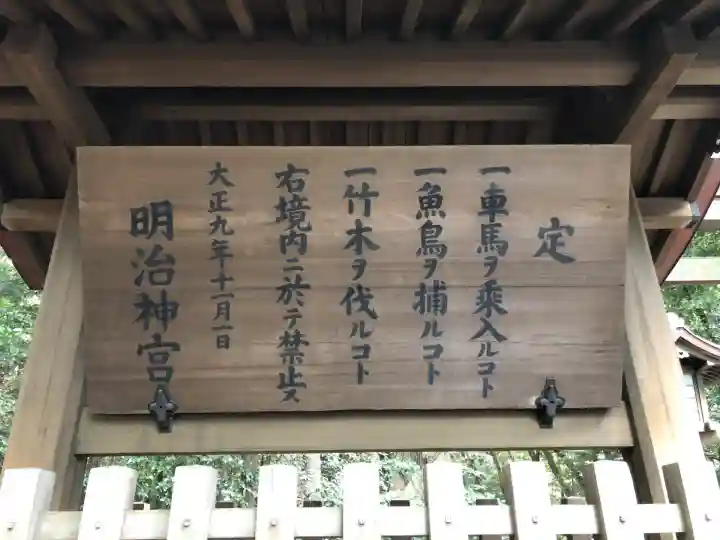 定
一車馬ヲ乗入ルコト
一魚鳥ヲ捕ルコト
一竹木ヲ伐ルコト
右境内ニ於テ禁止ス
大正九年十一月一日
明治神宮